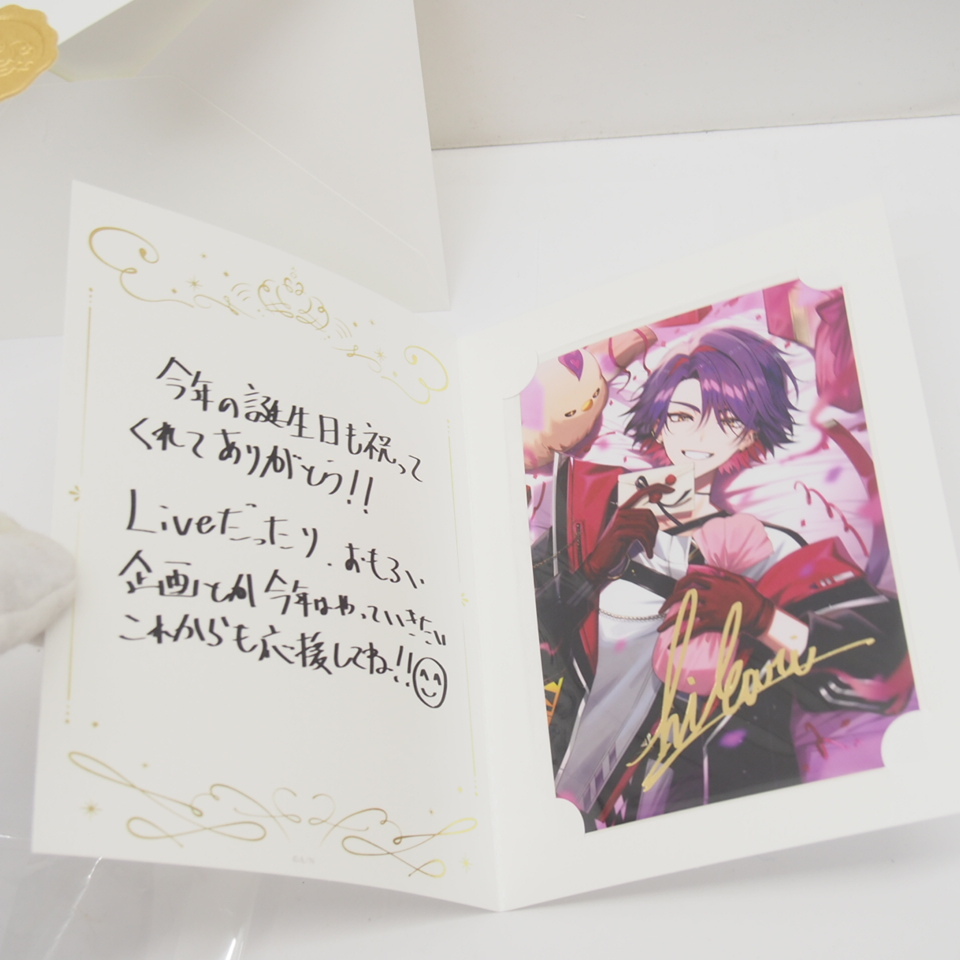 今年の誕生日も祝って
くれてありがとう!!
Liveだったり、おもろい
企画とか今年はやっていきたい
これからも応援してね!!
hikaru